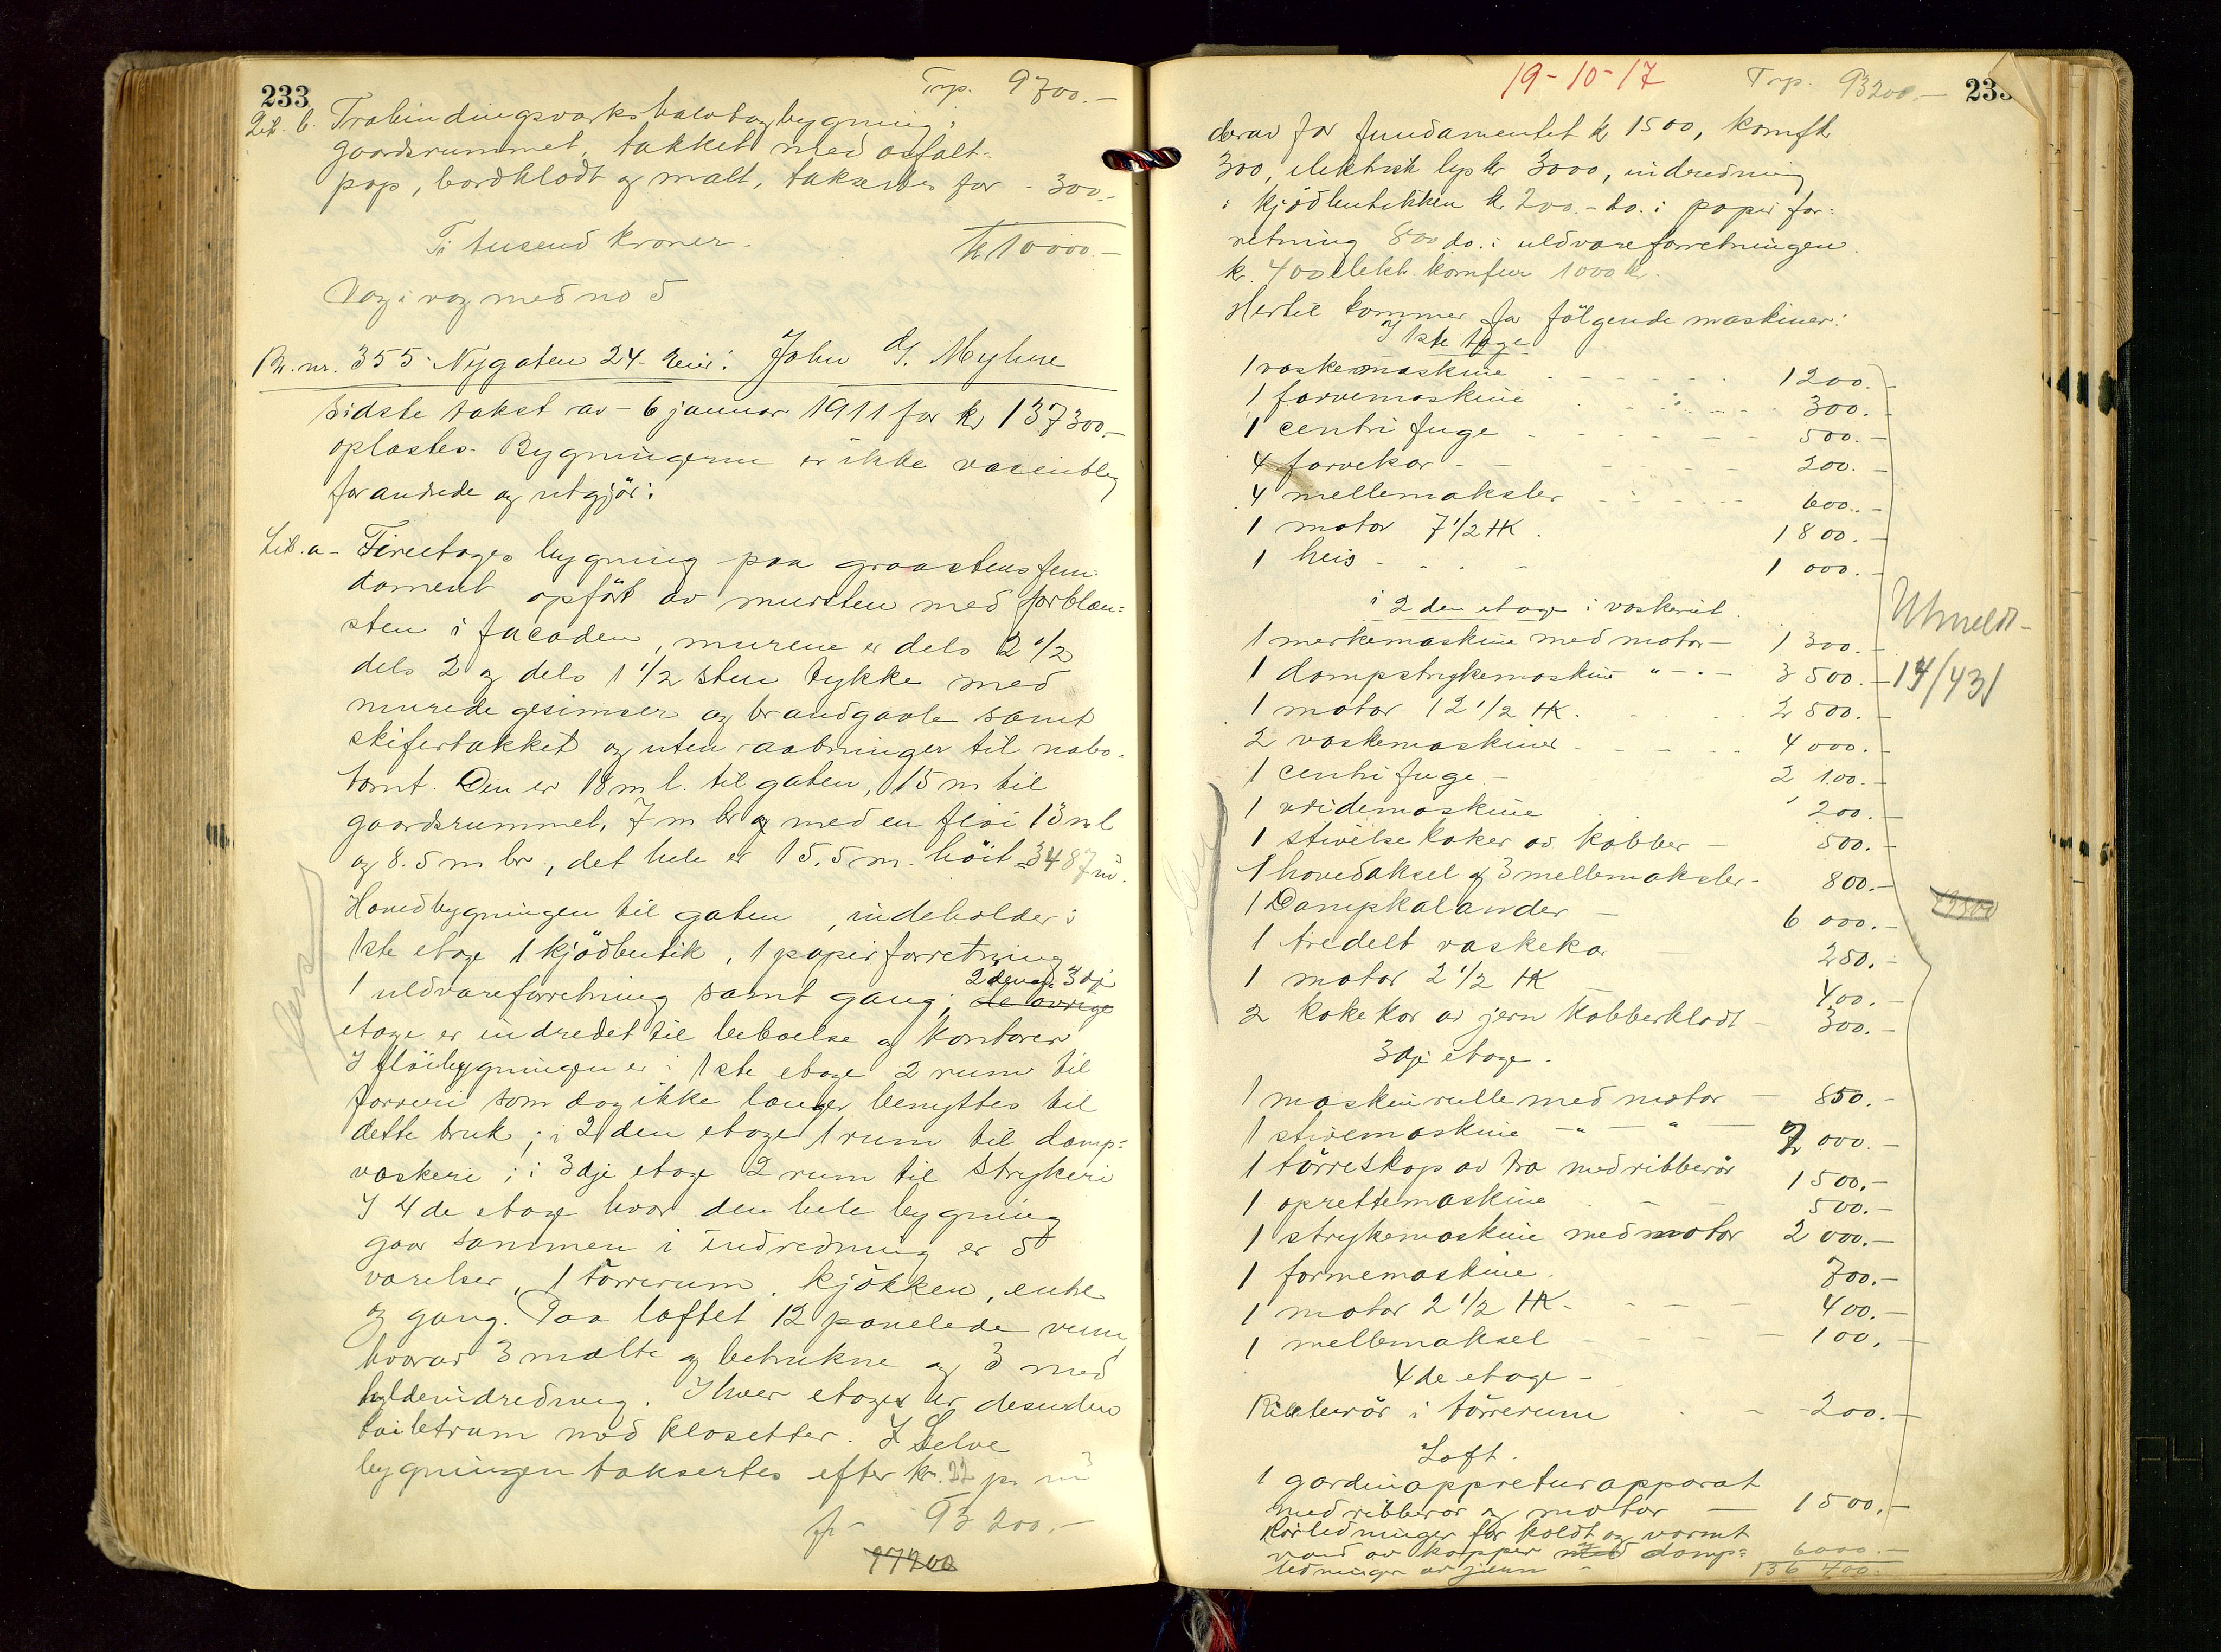 233
Trp. 9700.-
Lit. b. Træbindingsverks halvtagbygning i
gaardsrummet, tækket med asfalt-
pap, bordklædt og malt, takseres for - 300.-
Ti tusend kroner.
kr 10000.-
Væg i væg med no 5
Br. nr. 355 Nygaten 24. Eier: John G. Myhre
Sidste takst av - 6 januar 1911 for kr 137300.-
oplæstes. Bygningerne er ikke væsentlig
forandrede og utgjör:
Lit. a - Fireetages bygning paa graastensfun-
dament opfört av mursten med forblæn-
sten i facaden, murene er dels 2 1/2
dels 2 og dels 1 1/2 sten tykke med
murede gesimser og brandgavle samt
skifertækket og uten aabninger til nabo-
tomt. Den er 18 m l. til gaten, 15 m til
gaardsrummet, 7 m br og med en flöi 13 m l
og 8.5 m br, det hele er 15.5 m. höit = 3487 m³.
Hovedbygningen til gaten, indeholder i
1ste etage 1 kjödbutik, 1 papirforretning
1 uldvareforretning samt gang; de övrige 2den og 3dje
etage er indredet til beboelse og kontorer
I flöibygningen er i 1ste etage 2 rum til
farveri som dog ikke længer benyttes til
dette bruk; i 2den etage 1 rum til damp-
vaskeri; i 3dje etage 2 rum til strykeri
I 4de etage hvor den hele bygning
gaar sammen i indredning er 5
værelser, 1 törrerum, kjökken, entre
og gang. Paa loftet 12 panelede rum,
hvorav 3 malte og betrukne og 3 med
hyldeindredning. I hver etage er desuden
toiletrum med klosetter. Selve
bygningen taksertes efter kr. 22 pr m³
fr - 93 200.-
77200
19-10-17
Trp. 93200.-
233
derav for fundamentet kr 1500, komf kr
300, elektrisk lys kr 3000, indredning
i kjödbutikken kr 200.- do. i papirfor-
retning 800 do. i uldvareforretningen
kr. 400 elekt. komfur 1000 kr.
Hertil kommer for fölgende maskiner:
I 1ste etage
1 vaskemaskine - 1200.-
1 farvemaskine - 300.-
1 centrifuge - 500.-
4 farvekar - 200.-
4 mellemaksler - 600.-
1 motor 7 1/2 HK. 1800.-
1 heis - 1 000.-
i 2den etage i vaskeriet.
1 merkemaskine med motor - 1 300.-
1 dampstrykemaskine " - " - 3 500.-
1 motor 12 1/2 HK. 2 500.-
2 vaskemaskiner - 4 000.-
1 centrifuge - 2 100.-
1 vridemaskine 200.-
1 stivelsekoker av kobber - 500.-
1 hovedaksel og 3 mellemaksler - 800.-
1 Dampkalander - 6 000.-
1 tredelt vaskekar 250.-
1 motor 2 1/2 HK 400.-
2 kokekar av jern kobberklædt - 300.-
3dje etage.
1 maskinrulle med motor - 850.-
1 stivemaskine - " - " - 2 000.-
1 törreskap av træ med ribberör 1500.-
1 oprettemaskine - 500.-
1 strykemaskine med motor 2 000.-
1 formemaskine. 700.-
1 motor 2 1/2 HK. - 400.-
1 mellemaksel - 100.-
4de etage -
Ribberör i törrerum - 200.-
Loft.
1 gardinappreturapparat
med ribberör og motor - 1500.-
Rörledninger for koldt og varmt
vand av kopper med damp-
ledninger av jern - 6000.-
136 400.-
Utmeldt
14/431